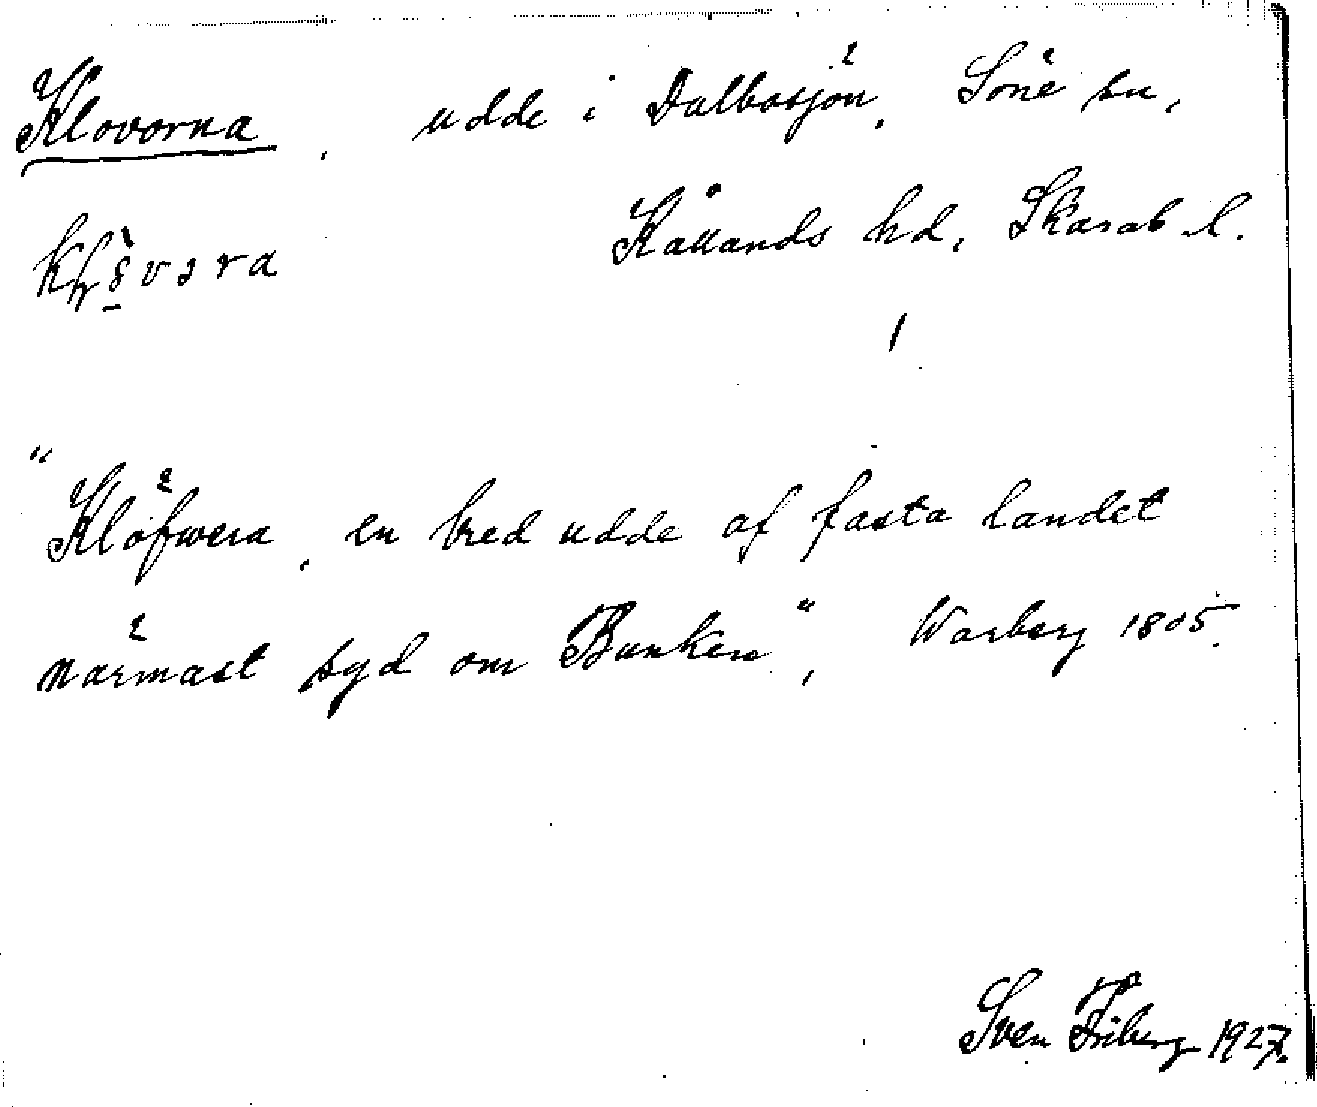 Klovorna, udde i Dalbosjön, Söne sn,
Kållands hd, Skarab. l.
"Klöfwera, en bred udde af fasta landet
närmast syd om Bunken", Warberg 1805.
Sven Friberg 1927.